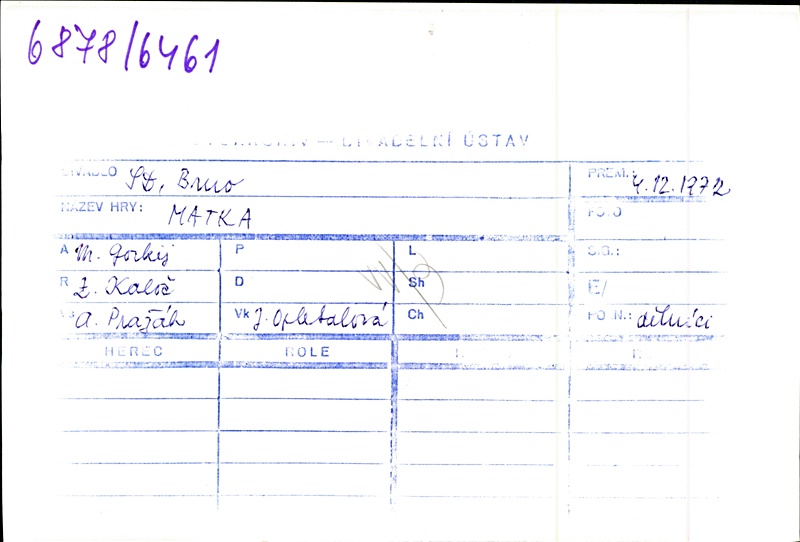 6878/6461
— DIVADELNÍ ÚSTAV
DIVADLO SD, Brno PREM.: 4.12.1972
NÁZEV HRY: MATKA FOTO
A M. Gorkij P L SIG.:
R Z. Kaloč D Sh E/
A. Pražák Vk J. Opletalová Ch FO N.: dělníci
HEREC ROLE